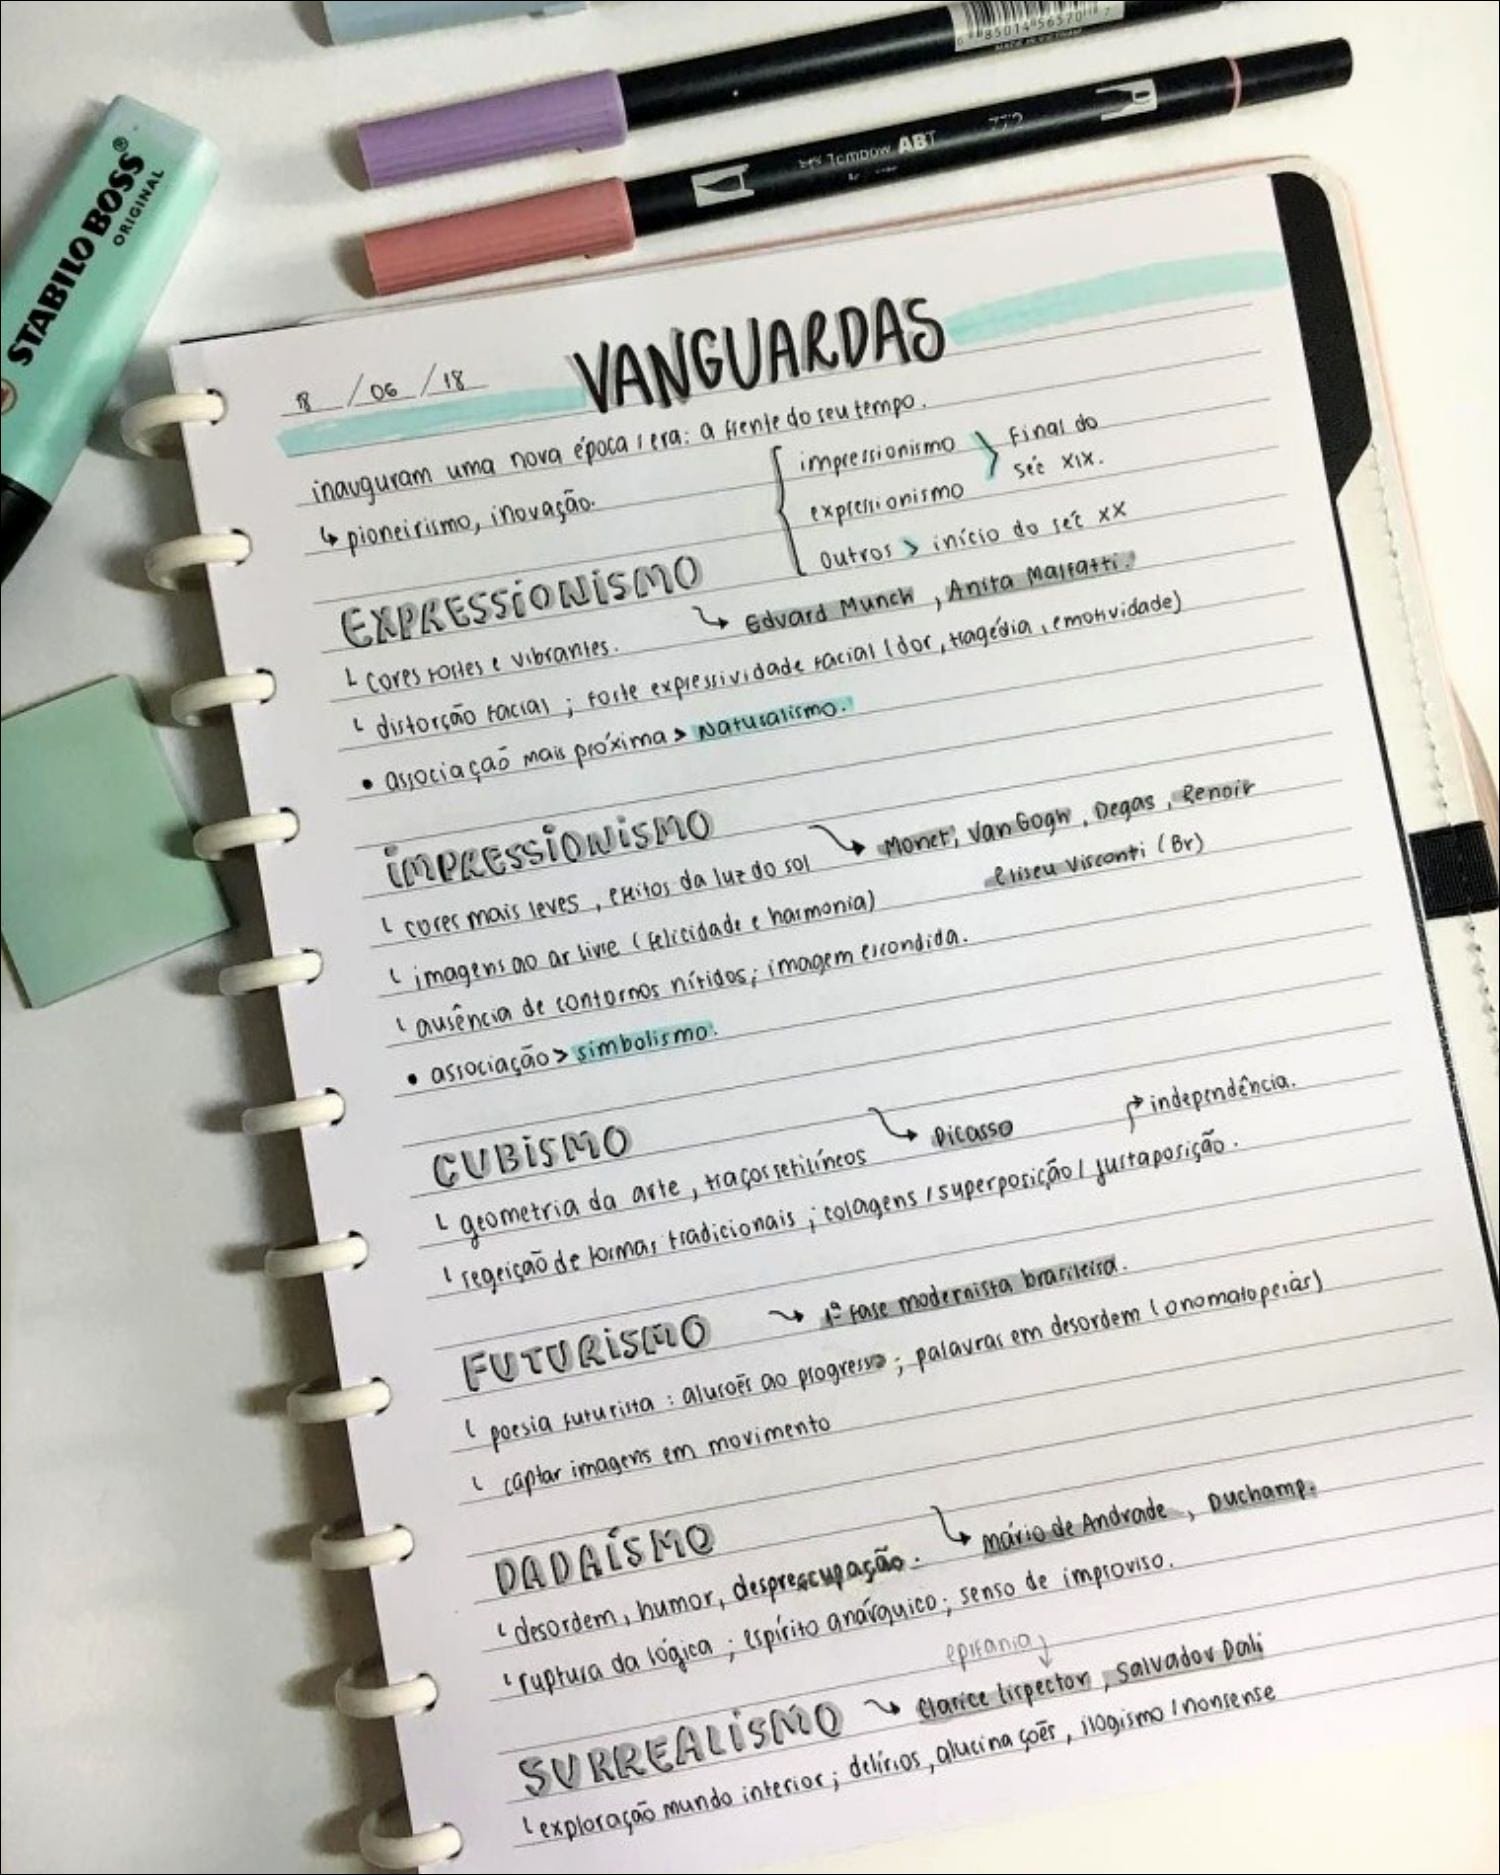 685014 56570
MADE IN VIETNAM
Tombow ABT
STABILO BOSS®
ORIGINAL
8 / 06 / 18
VANGUARDAS
inauguram uma nova época / era: a frente do seu tempo.
↳ pioneirismo, inovação.
impressionismo
expressionismo
final do
séc XIX.
outros > início do séc XX
EXPRESSIONISMO
Edvard Munch, Anita Malfatti.
cores fortes e vibrantes.
distorção facial; forte expressividade facial (dor, tragédia, emotividade)
• associação mais próxima > Naturalismo.
IMPRESSIONISMO
Monet, Van Gogh, Degas, Renoir
Eliseu Visconti (Br)
cores mais leves, efeitos da luz do sol
imagens ao ar livre (felicidade e harmonia)
ausência de contornos nítidos; imagem escondida.
• associação > simbolismo.
CUBISMO
Picasso
independência.
geometria da arte, traços retilíneos
regeição de formas tradicionais; colagens / superposição / justaposição.
FUTURISMO
1ª fase modernista brasileira.
poesia futurista: alusões ao progresso; palavras em desordem (onomatopeias)
captar imagens em movimento
DADAÍSMO
Mário de Andrade, Duchamp.
desordem, humor, despreocupação.
ruptura da lógica; espírito anárquico; senso de improviso.
epifania
SURREALISMO
Clarice Lispector, Salvador Dali
exploração mundo interior; delírios, alucinações, ilogismo / nonsense